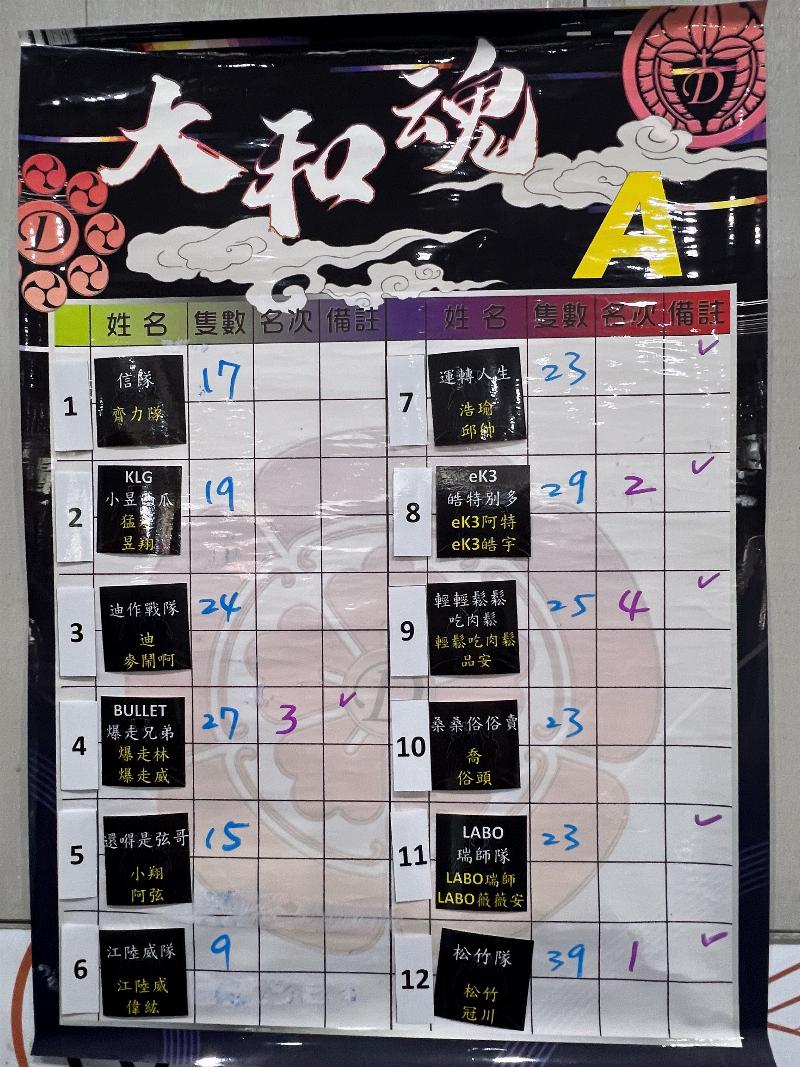 大和魂
A
姓名 隻數 名次 備註 姓名 隻數 名次 備註
1 信隊 17
齊力隊
2 KLG 19
小昱西瓜
猛
昱翔
3 迪作戰隊 24
迪
麥鬧啊
4 BULLET 27 3 ✓
爆走兄弟
爆走林
爆走威
5 還嘚是弦哥 15
小翔
阿弦
6 江陸威隊 9
江陸威
偉紘
7 運轉人生 23 ✓
浩瑜
邱帥
8 eK3 29 2 ✓
皓特別多
eK3阿特
eK3皓宇
9 輕輕鬆鬆 25 4 ✓
吃肉鬆
輕鬆吃肉鬆
品安
10 桑桑俗俗賣 23
喬
俗頭
11 LABO 23 ✓
瑞師隊
LABO瑞師
LABO薇薇安
12 松竹隊 39 1 ✓
松竹
冠川